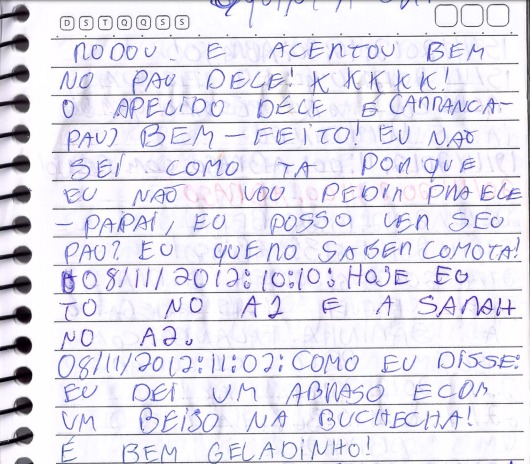 RODOU. E ACERTOU BEM
NO PAU DELE! KKKKK!
O APELIDO DELE É CARRANCA-
PAU) BEM-FEITO! EU NÃO
SEI COMO TA PORQUE
EU NÃO VOU PEDIR PRA ELE
- PAPAI, EU POSSO VER SEU
PAU? EU QUERO SABER COMOTA!
08/11/2012:10:10: HOJE EU
TO NO A2 E A SARAH
NO A2.
08/11/2012:11:02: COMO EU DISSE:
EU DEI UM ABRASO ECOM
UM BEISO NA BUCHECHA!
É BEM GELADINHO!